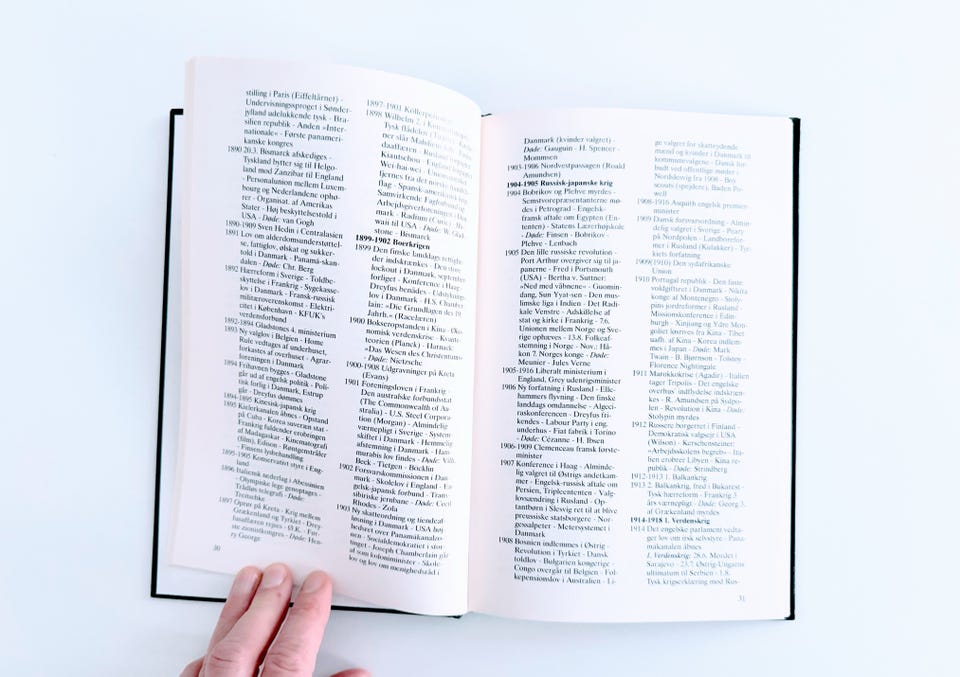 stilling i Paris (Eiffeltårnet) -
Undervisningssproget i Sønder-
jylland udelukkende tysk - Bra-
silien republik - Anden »Inter-
nationale« - Første panameri-
kanske kongres
1890 20.3. Bismarck afskediges -
Tyskland bytter sig til Helgo-
land mod Zanzibar til England
- Personalunion mellem Luxem-
bourg og Nederlandene ophø-
rer - Organisat. af Amerikas
Stater - Høj beskyttelsestold i
USA - Døde: van Gogh
1890-1909 Sven Hedin i Centralasien
1891 Lov om alderdomsunderstøttel-
se, fattiglov, ølskat og sukker-
told i Danmark - Panamá-skan-
dalen - Døde: Chr. Berg
1892 Hærreform i Sverige - Toldbe-
skyttelse i Frankrig - Sygekasse-
lov i Danmark - Fransk-russisk
militæroverenskomst - Elektri-
citet i København - KFUK's
verdensforbund
1892-1894 Gladstones 4. ministerium
1893 Ny valglov i Belgien - Home
Rule vedtages af underhuset,
forkastes af overhuset - Agrar-
foreningen i Danmark
1894 Frihavnen bygges - Gladstone
går ud af engelsk politik - Poli-
tisk forlig i Danmark, Estrup
går - Dreyfus dømmes
1894-1895 Kinesisk-japansk krig
1895 Kielerkanalen åbnes - Opstand
på Cuba - Korea suveræn stat -
Frankrig fuldender erobringen
af Madagaskar - Kinematografi
(film), Edison - Røntgenstråler
- Finsens lysbehandling
1895-1905 Konservativt styre i Eng-
land
1896 Italiensk nederlag i Abessinien
- Olympiske lege genoptages -
Trådløs telegrafi - Døde:
Treitschke
1897 Oprør på Kreta - Krig mellem
Grækenland og Tyrkiet - Drey-
fusaffæren rypes - Ø.K. - Før-
ste zionistkongres - Døde: Hen-
ry George
30
1897-1901 Kollerperioden
1898 Wilhelm 2. i
Tysk flådelov
ner slår Mahdien
daaffæren - Rusland forpagter
Kiautschou - England forpagter
Wei-hai-wei - Unionsmærket
fjernes fra det norske handels-
flag - Spansk-amerikansk krig
Samvirkende Fagforbund og
Arbejdsgiverforeningen i Dan-
mark - Radium (Curie) - Ha-
waii til USA - Døde: W. Glad-
stone - Bismarck
1899-1902 Boerkrigen
1899 Den finske landdags rettighe-
der indskrænkes - Den store
lockout i Danmark, september-
forliget - Konference i Haag -
Dreyfus benådes - Udstyknings-
lov i Danmark - H.S. Chamber-
lain: »Die Grundlagen des 19.
Jahrh.« (Racelæren)
1900 Bokseropstanden i Kina - Øko-
nomisk verdenskrise - Kvante-
teorien (Planck) - Harnack:
»Das Wesen des Christentums«
- Døde: Nietzsche
1900-1908 Udgravninger på Kreta
(Evans)
1901 Foreningsloven i Frankrig -
Den australske forbundsstat
(The Commonwealth of Au-
stralia) - U.S. Steel Corpora-
tion (Morgan) - Almindelig
værnepligt i Sverige - System-
skiftet i Danmark - Hemmelig
afstemning i Danmark - Ham-
murabis lov findes - Døde: Vilh.
Beck - Tietgen - Böcklin
1902 Forsvarskommissionen i Dan-
mark - Skolelov i England - En-
gelsk-japansk forbund - Trans-
sibiriske jernbane - Døde: Cecil
Rhodes - Zola
1903 Ny skatteordning og tiendeaf-
løsning i Danmark - USA høj-
hedsret over Panamákanalzo-
nen - Socialdemokratiet i stor-
tinget - Joseph Chamberlain går
af som koloniminister - Skole-
lov og lov om menighedsråd i
Danmark (kvinder valgret) -
Døde: Gauguin - H. Spencer -
Mommsen
1903-1906 Nordvestpassagen (Roald
Amundsen)
1904-1905 Russisk-japanske krig
1904 Bobrikov og Plehve myrdes -
Semstvorepræsentanterne mø-
des i Petrograd - Engelsk-
fransk aftale om Egypten (En-
tenten) - Statens Lærerhøjskole
- Døde: Finsen - Bobrikov -
Plehve - Lenbach
1905 Den lille russiske revolution -
Port Arthur overgiver sig til ja-
panerne - Fred i Portsmouth
(USA) - Bertha v. Suttner:
»Ned med våbnene« - Guomin-
dang, Sun Yyat-sen - Den mus-
limske liga i Indien - Det Radi-
kale Venstre - Adskillelse af
stat og kirke i Frankrig - 7.6.
Unionen mellem Norge og Sve-
rige ophæves - 13.8. Folkeaf-
stemning i Norge - Nov.: Hå-
kon 7. Norges konge - Døde:
Meunier - Jules Verne
1905-1916 Liberalt ministerium i
England, Grey udenrigsminister
1906 Ny forfatning i Rusland - Elle-
hammers flyvning - Den finske
landdags omdannelse - Algeci-
raskonferencen - Dreyfus fri-
kendes - Labour Party i eng.
underhus - Fiat fabrik i Torino
- Døde: Cézanne - H. Ibsen
1906-1909 Clemenceau fransk første-
minister
1907 Konference i Haag - Alminde-
lig valgret til Østrigs andetkam-
mer - Engelsk-russisk aftale om
Persien, Tripleententen - Valg-
lovsændring i Rusland - Op-
tantbørn i Slesvig ret til at blive
preussiske statsborgere - Nor-
gessalpeter - Metersystemet i
Danmark
1908 Bosnien indlemmes i Østrig -
Revolution i Tyrkiet - Dansk
toldlov - Bulgarien kongerige -
Congo overgår til Belgien - Fol-
kepensionslov i Australien - Li-
ge valgret for skatteydende
mænd og kvinder i Danmark til
kommunevalgene - Dansk for-
budt ved offentlige møder i
Nordslesvig fra 1908 - Boy
scouts (spejdere), Baden Po-
well
1908-1916 Asquith engelsk premier-
minister
1909 Dansk forsvarsordning - Almin-
delig valgret i Sverige - Peary
på Nordpolen - Landborefor-
mer i Rusland (Kulakker) - Tyr-
kiets forfatning
1909(1910) Den sydafrikanske
Union
1910 Portugal republik - Den faste
voldgiftsret i Danmark - Nikita
konge af Montenegro - Stoly-
pins jordreformer i Rusland -
Missionskonference i Edin-
burgh - Xinjiang og Ydre Mon-
goliet løsrives fra Kina - Tibet
uafh. af Kina - Korea indlem-
mes i Japan - Døde: Mark
Twain - B. Bjørnson - Tolstoy -
Florence Nightingale
1911 Marokkokrise (Agadir) - Italien
tager Tripolis - Det engelske
overhus' indflydelse indskræn-
kes - R. Amundsen på Sydpo-
len - Revolution i Kina - Døde:
Stolypin myrdes
1912 Russere borgerret i Finland -
Demokratisk valgsejr i USA
(Wilson) - Kerschensteiner:
»Arbejdsskolens begreb« - Ita-
lien erobrer Libyen - Kina re-
publik - Døde: Strindberg
1912-1913 1. Balkankrig
1913 2. Balkankrig, fred i Bukarest -
Tysk hærreform - Frankrig 3
års værnepligt - Døde: Georg 1.
af Grækenland myrdes
1914-1918 1. Verdenskrig
1914 Det engelske parlament vedta-
ger lov om irsk selvstyre - Pana-
mákanalen åbnes
1. Verdenskrig: 28.6. Mordet i
Sarajevo - 23.7. Østrig-Ungarns
ultimatum til Serbien - 1.8.
Tysk krigserklæring mod Rus-
31